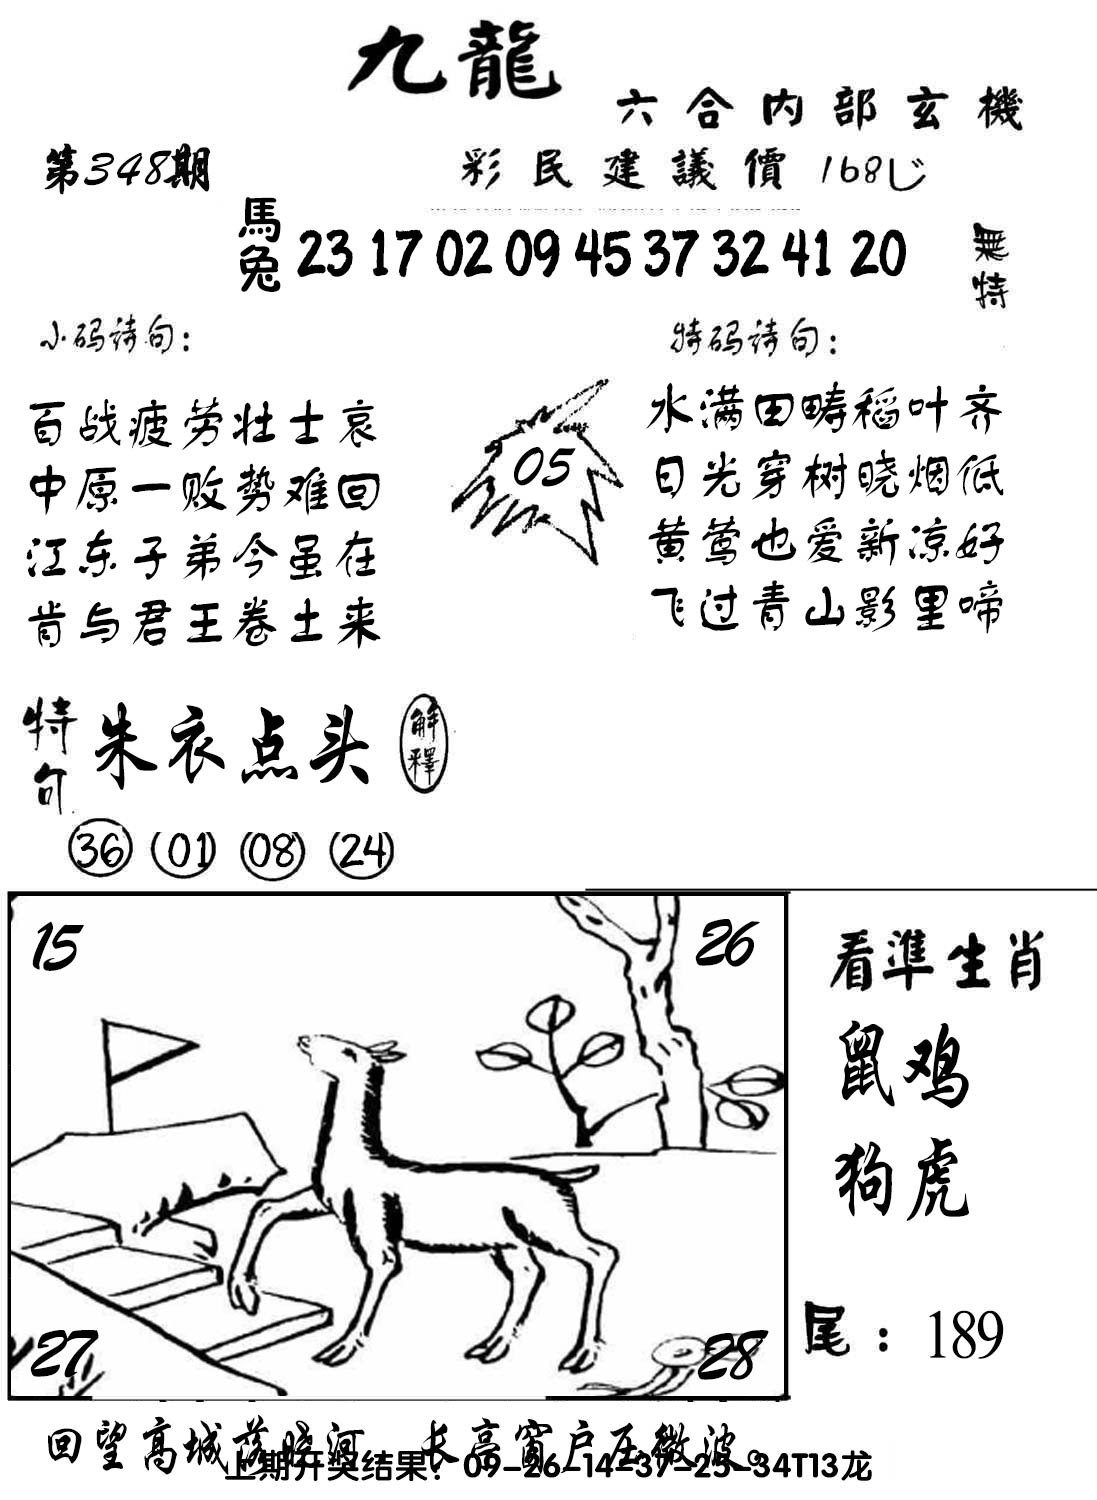 九龍
六合内部玄機
第348期
彩民建議價 168
馬兔 23 17 02 09 45 37 32 41 20
無特
小码诗句：
百战疲劳壮士哀
中原一败势难回
江东子弟今虽在
肯与君王卷土来
05
特码诗句：
水满田畴稻叶齐
日光穿树晓烟低
黄莺也爱新凉好
飞过青山影里啼
特句 朱衣点头 解釋
36 (01) (08) (24)
15 26
27 28
看準生肖
鼠鸡
狗虎
尾：189
回望高城落晓河 长亭窗户压微波。
上期开奖结果：09-26-14-37-25-34T13龙